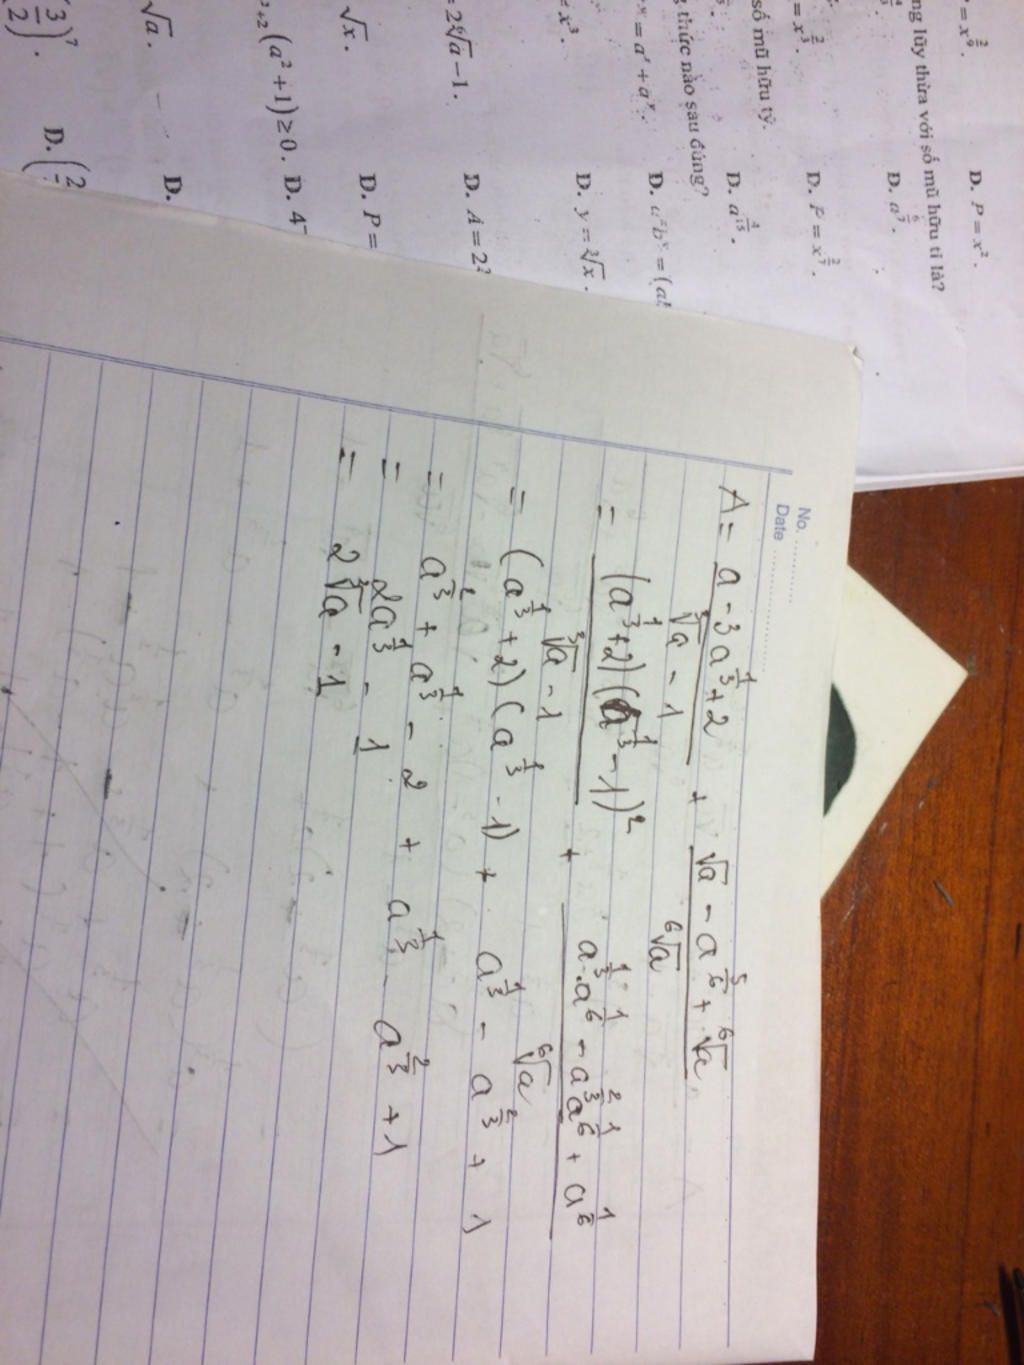 = x^{\frac{2}{9}}.
D. P = x^2.
ng lũy thừa với số mũ hữu tỉ là?
D. a^{\frac{6}{7}}.
= x^{\frac{2}{3}}.
D. P = x^{\frac{2}{7}}.
số mũ hữu tỷ.
D. a^{\frac{4}{15}}.
thức nào sau đúng?
= a^x + a^y.
D. a^x b^y = (ab
= x^3.
D. y = \sqrt[3]{x}.
= 2\sqrt[6]{a} - 1.
D. A = 2
\sqrt{x}.
D. P =
(a^2 + 1) ≥ 0.
D. 4^-
\sqrt{a}.
D.
(\frac{3}{2})^7.
D. (\frac{2}{
No.
Date
A = \frac{a - 3a^{\frac{1}{3}} + 2}{\sqrt[3]{a} - 1} + \frac{\sqrt{a} - a^{\frac{5}{6}} + \sqrt[6]{a}}{\sqrt[6]{a}}
= \frac{(a^{\frac{1}{3}} + 2)(a^{\frac{1}{3}} - 1)^2}{\sqrt[3]{a} - 1} + \frac{a^{\frac{1}{3}} . a^{\frac{1}{6}} - a^{\frac{2}{3}} a^{\frac{1}{6}} + a^{\frac{1}{6}}}{\sqrt[6]{a}}
= (a^{\frac{1}{3}} + 2)(a^{\frac{1}{3}} - 1) + a^{\frac{1}{3}} - a^{\frac{2}{3}} + 1
= a^{\frac{2}{3}} + a^{\frac{1}{3}} - 2 + a^{\frac{1}{3}} - a^{\frac{2}{3}} + 1
= 2a^{\frac{1}{3}} - 1
= 2\sqrt[3]{a} - 1